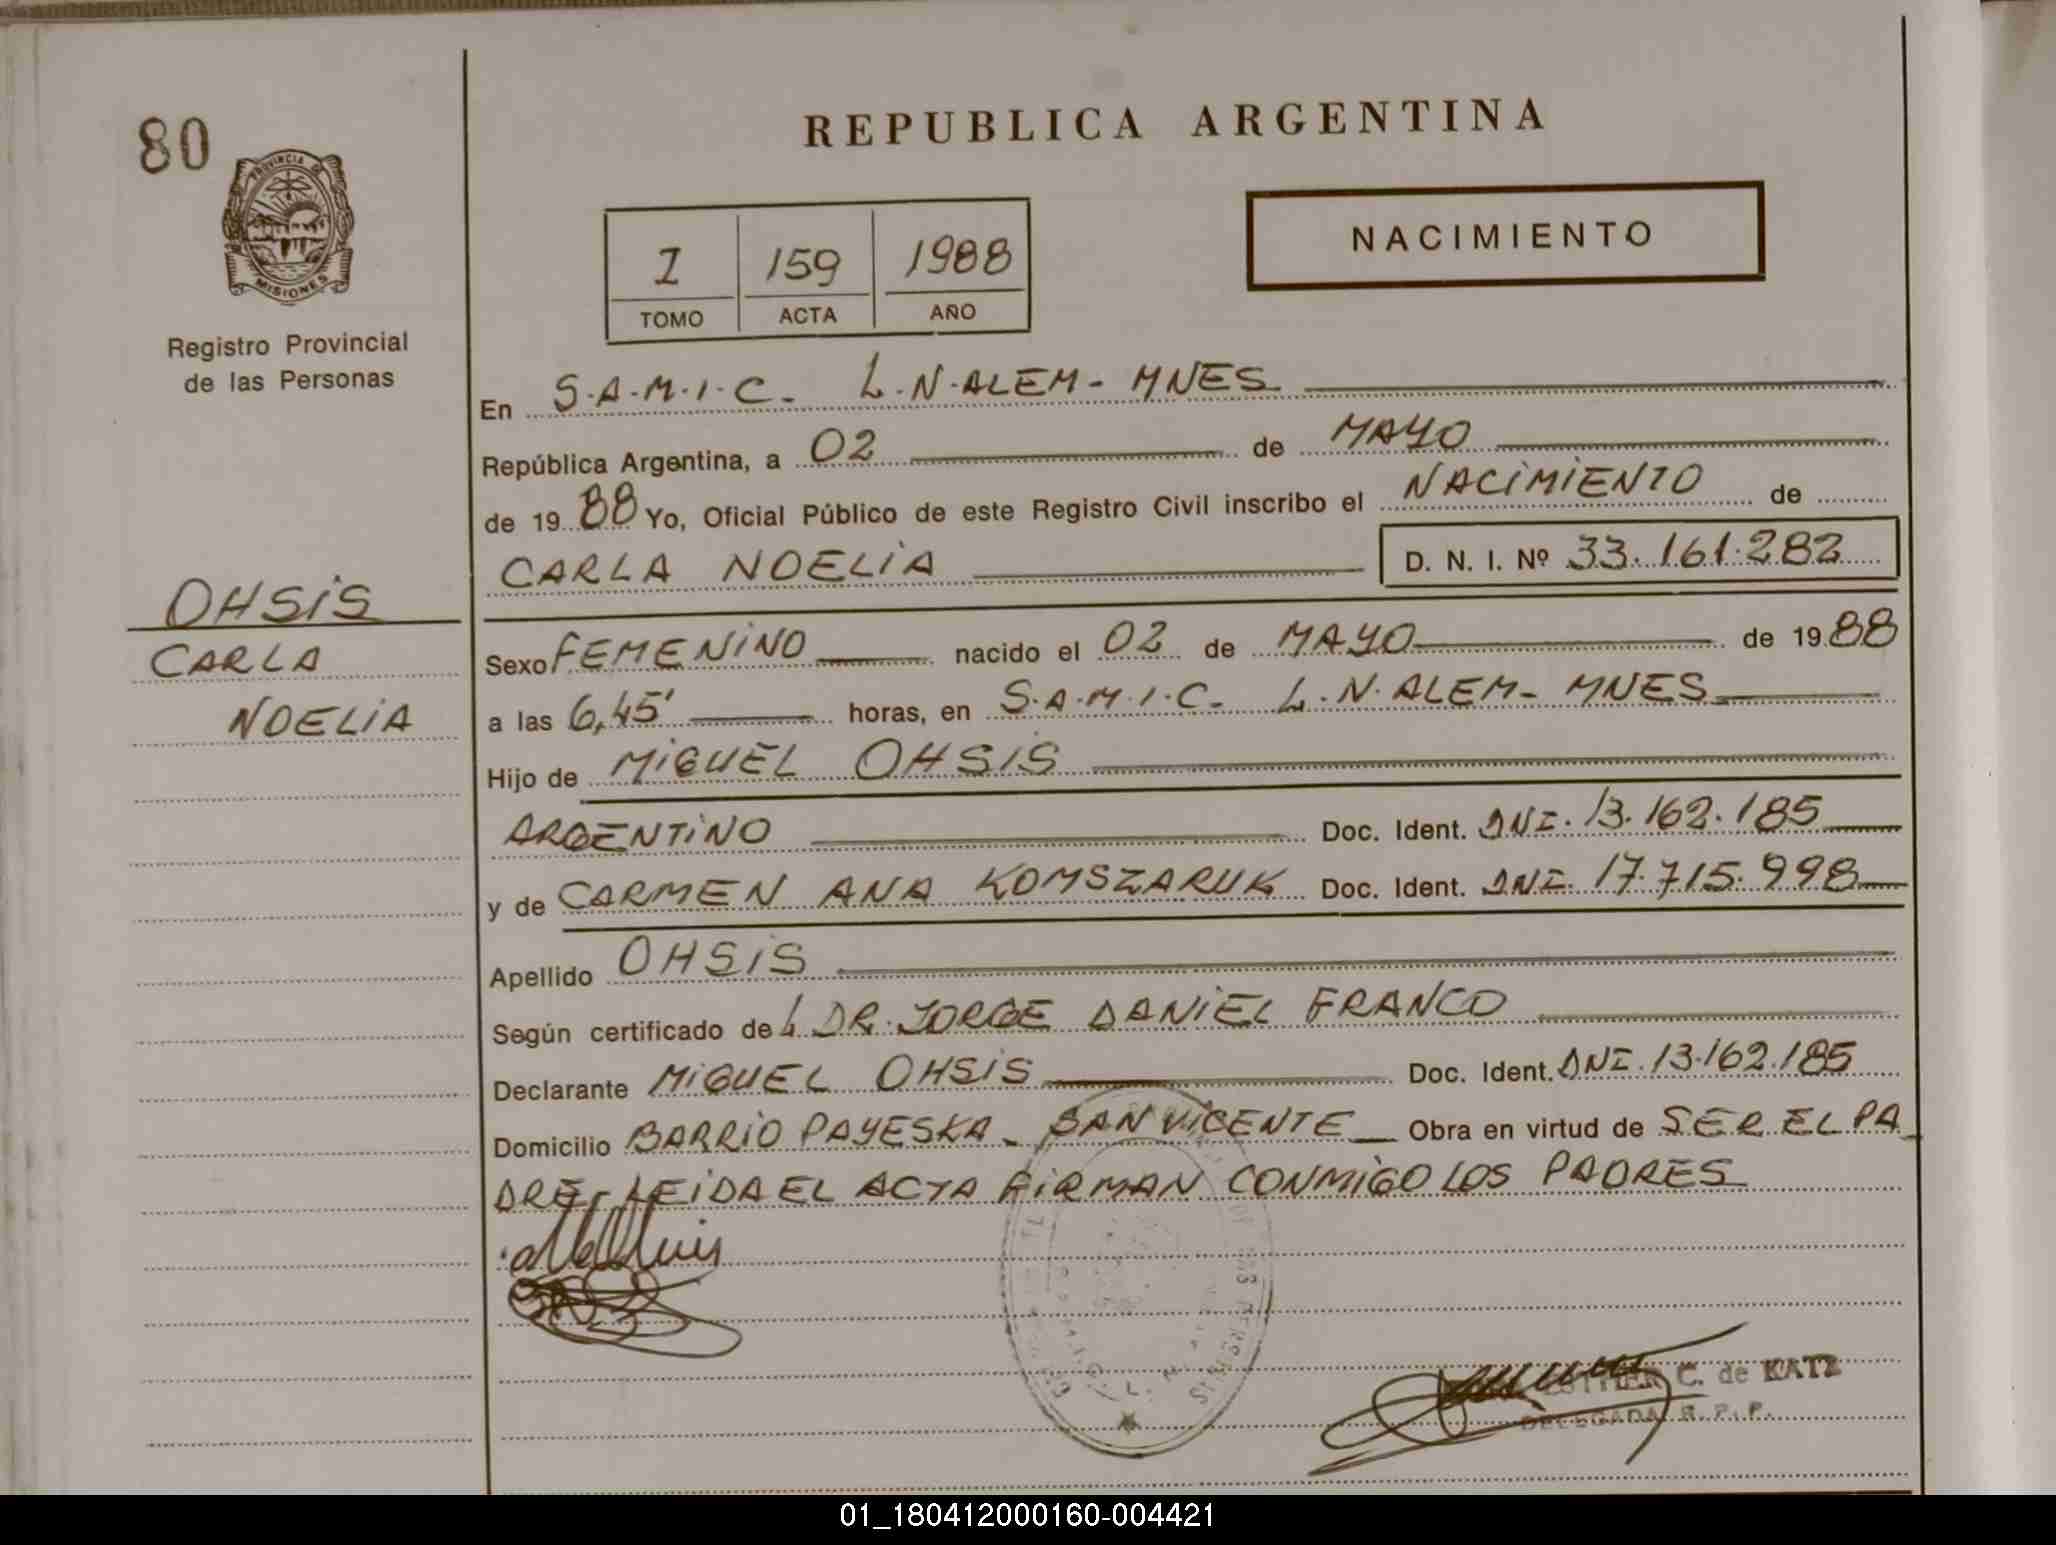 80
PROVINCIA DE
MISIONES
Registro Provincial
de las Personas
OHSIS
CARLA
NOELIA
REPUBLICA ARGENTINA
I 159 1988
TOMO ACTA AÑO
NACIMIENTO
En S.A.M.I.C. L.N.ALEM- MNES
República Argentina, a 02 de MAYO
de 19 88 Yo, Oficial Público de este Registro Civil inscribo el NACIMIENTO de
CARLA NOELIA D. N. I. Nº 33.161.282
Sexo FEMENINO nacido el 02 de MAYO de 19 88
a las 6,45' horas, en S.A.M.I.C. L.N.ALEM- MNES
Hijo de MIGUEL OHSIS
ARGENTINO Doc. Ident. DNI. 13.162.185
y de CARMEN ANA KOMSZARUK Doc. Ident. DNI. 17.715.998
Apellido OHSIS
Según certificado del DR. JORGE DANIEL FRANCO
Declarante MIGUEL OHSIS Doc. Ident. DNI. 13.162.185
Domicilio BARRIO PAYESKA - SAN VICENTE Obra en virtud de SER EL PA
DRE- LEIDA EL ACTA FIRMAN CONMIGO LOS PADRES
ESTHER C. de KATZ
DELEGADA R. P. P.
01_180412000160-004421